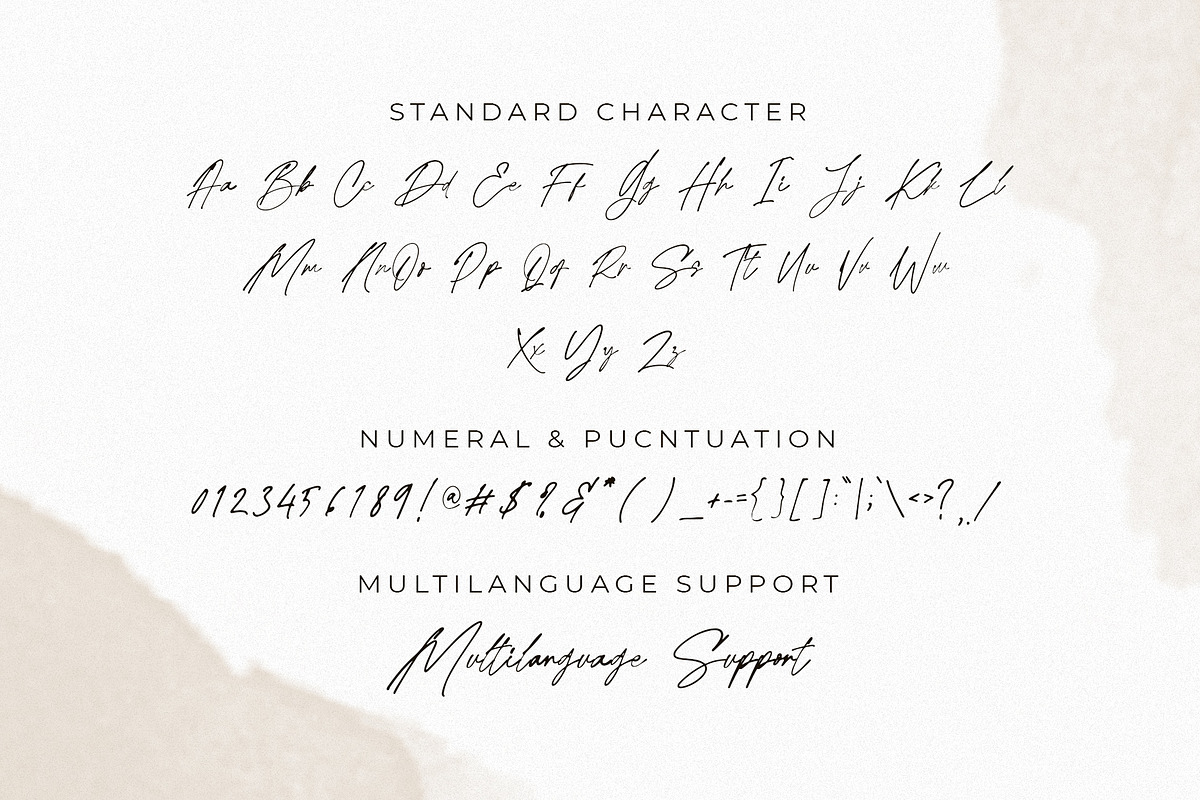 STANDARD CHARACTER
Aa Bb Cc Dd Ee Ff Gg Hh Ii Jj Kk Ll
Mm Nn Oo Pp Qq Rr Ss Tt Uu Vv Ww
Xx Yy Zz
NUMERAL & PUCNTUATION
0123456789!@#$%&*()_+-={}[]:"|;`\<>?,./
MULTILANGUAGE SUPPORT
Multilanguage Support